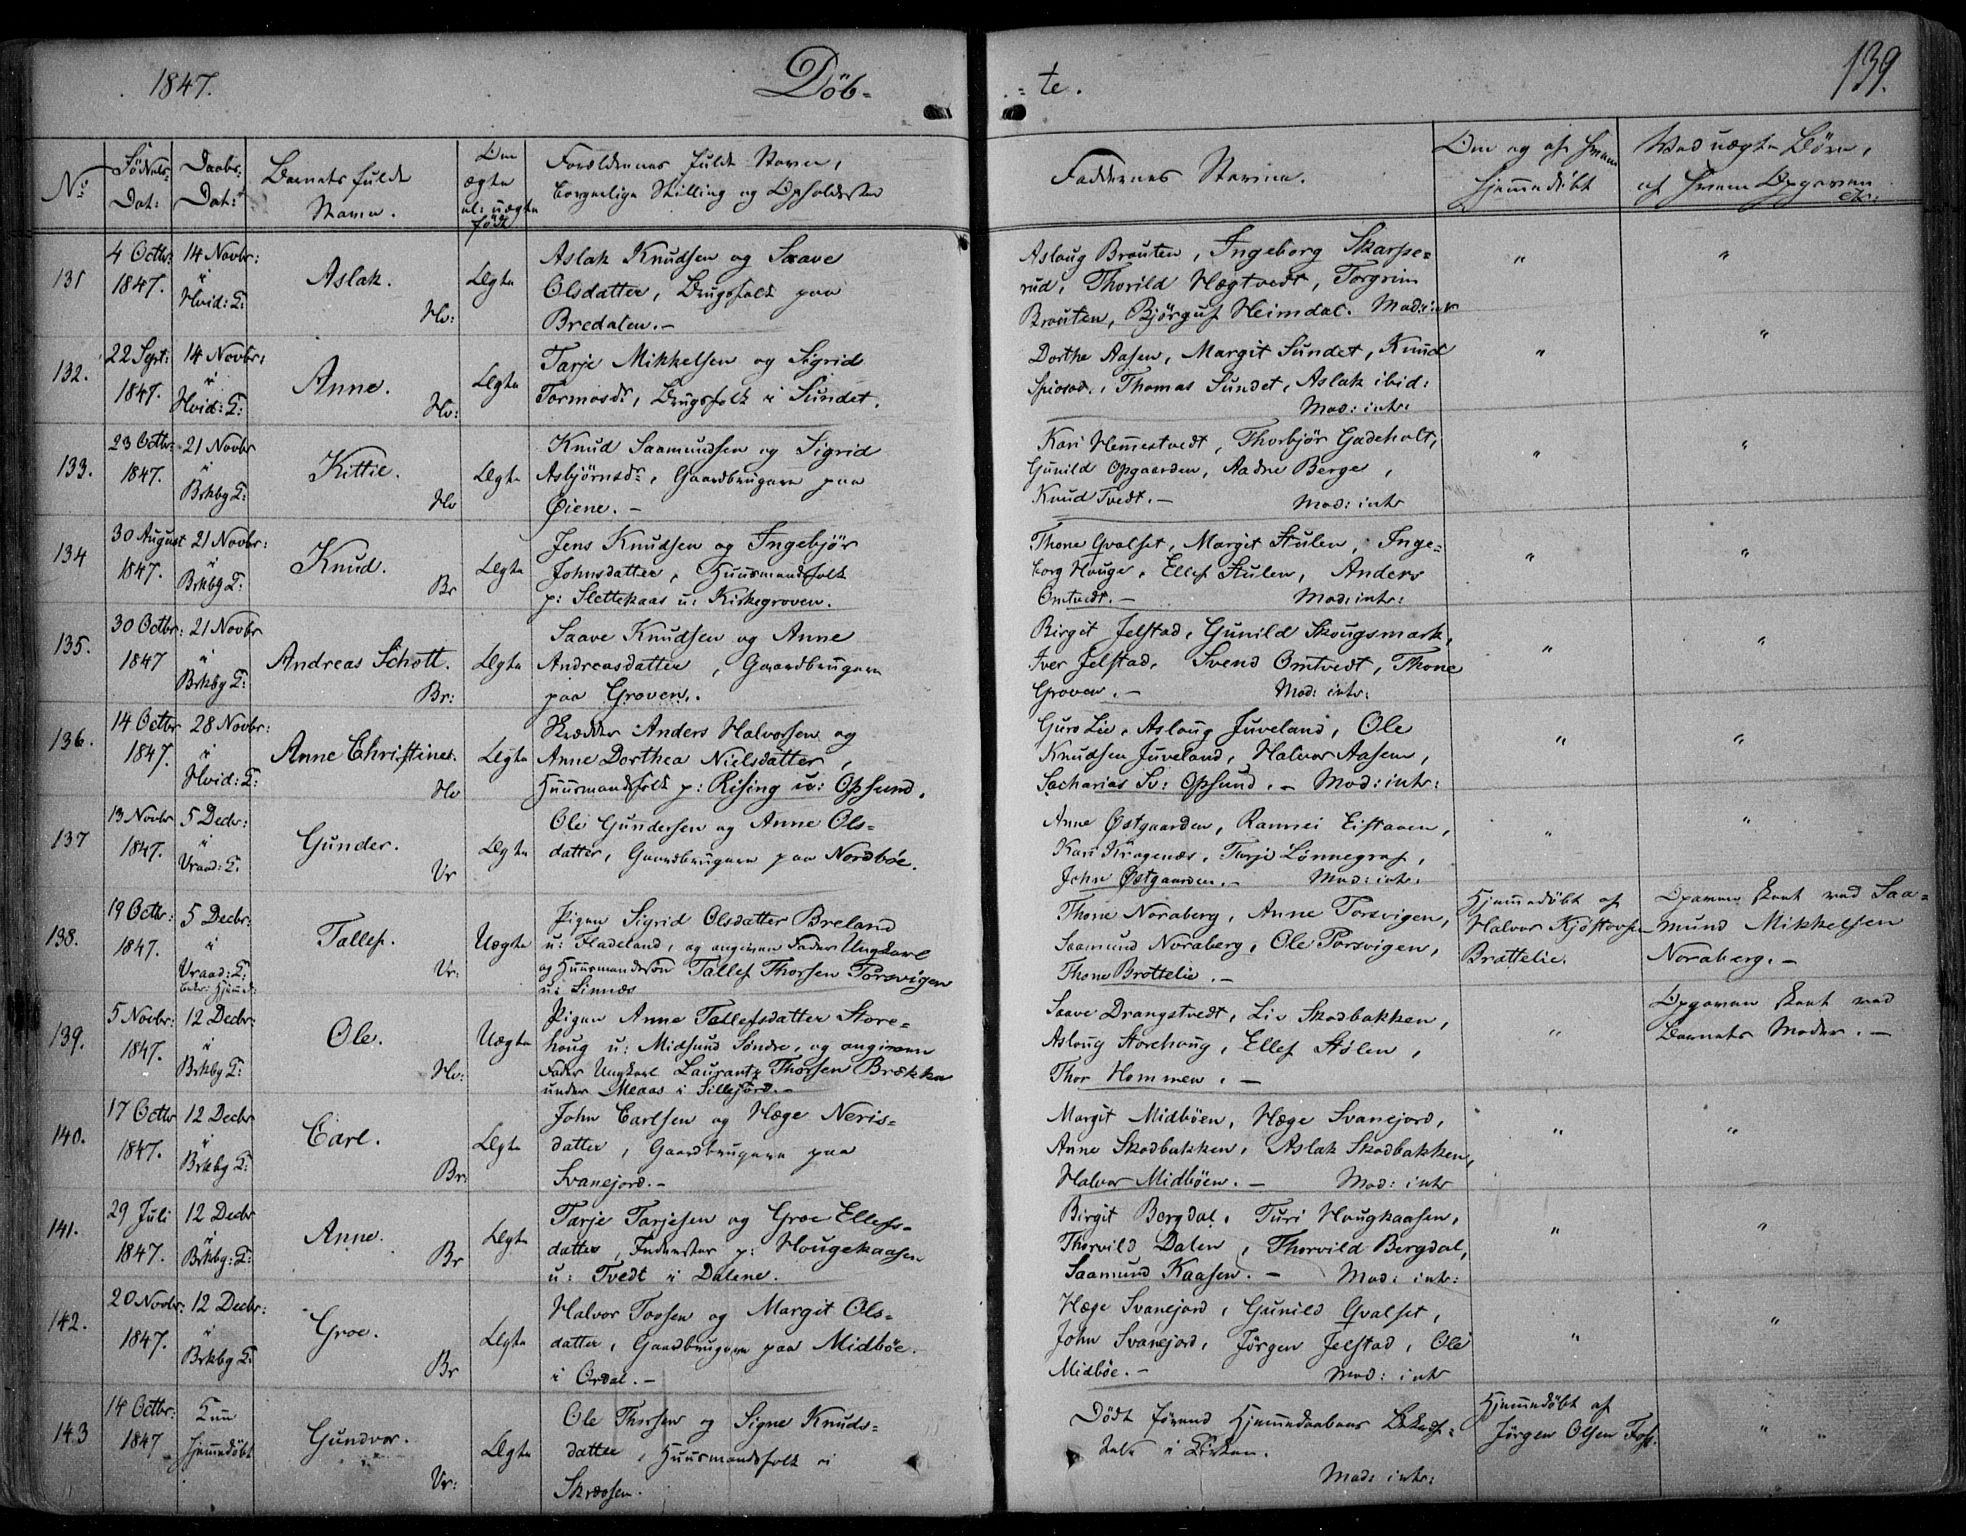 1847.
Döb-
-te.
139.
No
Fødsels-
Dat:
Daabs-
Dat:
Barnets fulde
Navn.
Om
ægte
el: uægte
født
Forældrenes fulde Navn,
borgerlige Stilling og Opholdssted
Faddernes Navne.
Om og af hvem
hjemmedöbt
Ved uægte Börn,
af hvem Opgaven
etc:
131
4 Octbr:
1847.
14 Novbr:
i
Hvid: K:
Aslak.
Hv:
Ægte
Aslak Knudsen og Saave
Olsdatter, Brugsfolk paa
Bredalen.-
Aslaug Brauten, Ingeborg Skarpe-
rud, Thorild Hægtvedt, Torgrim
Brauten, Björguf Heimdal. Mod: intr
"
"
132.
22 Sept:
1847.
14 Novbr:
i
Hvid: K:
Anne.
Hv:
Ægte
Tarje Mikkelsen og Sigrid
Tormosdr, Brugsfolk i Sundet.
Dorthe Aasen, Margit Sundet, Knud
Thomas Sundet, Aslak ibid:
Mod: intr:
"
"
133.
23 Octbr:
1847.
21 Novbr
i
Brkbg K:
Kittie.
Hv
Ægte
Knud Saamundsen og Sigrid
Asbjörnsdr, Gaardbrugere paa
Øiene.-
Kari Hemmestvedt, Thorbjör Gadeholt,
Gunild Opgaarden, Aadne Berge,
Knud Tvedt.- Mod: intr
"
"
134
30 August
1847.
21 Novbr:
i
Brkbg K:
Knud.
Br
Ægte
Jens Knudsen og Ingebjör
Johnsdatter, Huusmandsfolk
p: Slettekaas u: Kirkegroven.
Thone Qvalset, Margit Stulen, Inge-
borg Hauge, Ellef Stulen, Anders
Omtvedt.- Mod: intr:
"
"
135.
30 Octbr:
1847
21 Novbr
i
Brkbg K:
Andreas Schott.
Br:
Ægte
Saave Knudsen og Anne
Andreasdatter, Gaardbrugere
paa Groven.
Birgit Jelstad, Gunild Skougsmark,
Iver Jelstad, Svend Omtvedt, Thone
Groven.- Mod: intr:
"
"
136.
14 Octbr
1847.
28 Novbr:
i
Hvid: K:
Anne Christine.
Hv
Ægte
Skrædder Anders Halvorsen og
Anne Dorthea Nielsdatter,
Huusmandsfolk p: Rising u: Opsund.
Guro Lie, Aslaug Juveland, Ole
Knudsen Juveland, Halvor Aasen,
Sacharias Sv: Opsund.- Mod: intr:
"
"
137
13 Novbr
1847.
5 Decbr:
i
Vraad: K:
Gunder.
Vr
Ægte
Ole Gundersen og Anne Ols-
datter, Gaardbrugere paa Nordböe.
Anne Østgaarden, Rannei Eistaven,
Kari Kragenæs, Tarje Lönnegraf,
John Østgaarden.- Mod: intr.
"
"
138.
19 Octbr:
1847.
5 Decbr:
i
Vraad: K:
Tallef.
Vr:
Uægte
Pigen Sigrid Olsdatter Breland
u: Fladeland, og angiven Fader Ungkarl
og Huusmandssön Tallef Thorsen Torsvigen
u: Sinnæs
Thone Noraberg, Anne Torsvigen,
Saamund Noraberg, Ole Torsvigen,
Thone Brattelie.-
Hjemmedöbt af
Halvor Kjöstovsen
Brattelie.
Opgaven skeet ved Saa-
mund Mikkelsen
Noraberg.-
139.
5 Novbr:
1847.
12 Decbr:
i
Brkbg K:
Ole.
Hv:
Uægte
Pigen Anne Tallefsdatter Store-
houg u: Midsund Söndre, og angiven
Fader Ungkarl Laurants Thorsen Brække
under Meaas i Sillejord.-
Saave Drangstvedt, Liv Skodbakken,
Aslaug Storehaug, Ellef Stölen,
Thor Hommen.-
"
Opgaven skeet ved
Barnets Moder.-
140.
17 Octbr
1847.
12 Decbr
i
Brkbg K:
Carl.
Br:
Ægte
John Carlsen og Hæge Neris-
datter, Gaardbrugere paa
Svanejord.-
Margit Midböen, Hæge Svanejord,
Anne Skodbakken, Aslak Skodbakken,
Halvor Midböen.- Mod: intr
"
"
141.
29 Juli
1847.
12 Decbr
i
Brkbg: K:
Anne.
Br
Ægte
Tarje Tarjesen og Groe Ellefs-
datter, Inderster p: Hougekaasen
u: Tvedt i Dalene.
Birgit Bergdal, Turi Hougkaasen,
Thorvild Dalen, Thorvild Bergdal,
Saamund Kaasen.- Mod: intr:
"
"
142.
20 Novbr:
1847.
12 Decbr:
i
Brkbg K:
Groe.
Br
Ægte
Halvor Tovsen og Margit Ols-
datter, Gaardbrugere paa Midböe.
i Ordal.-
Hæge Svanejord, Gunild Qvalset,
John Svanejord, Jörgen Jelstad, Ole
Midböe.- Mod: intr
"
"
143
14 Octbr:
1847
Kun
hjemmedöbt
Gundvor.
Vr:
Ægte
Ole Thorsen og Signe Knuds-
datter, Huusmandsfolk i
Skræosen.
Dödt förend Hjemmedaabens Bekræft-
else i Kirken.
Mod: intr:
Hjemmedöbt af
Jörgen Olsen Foss.
"
"